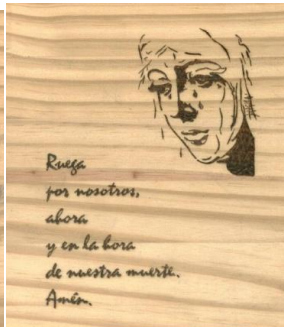 Ruega
por nosotros,
ahora
y en la hora
de nuestra muerte.
Amén.